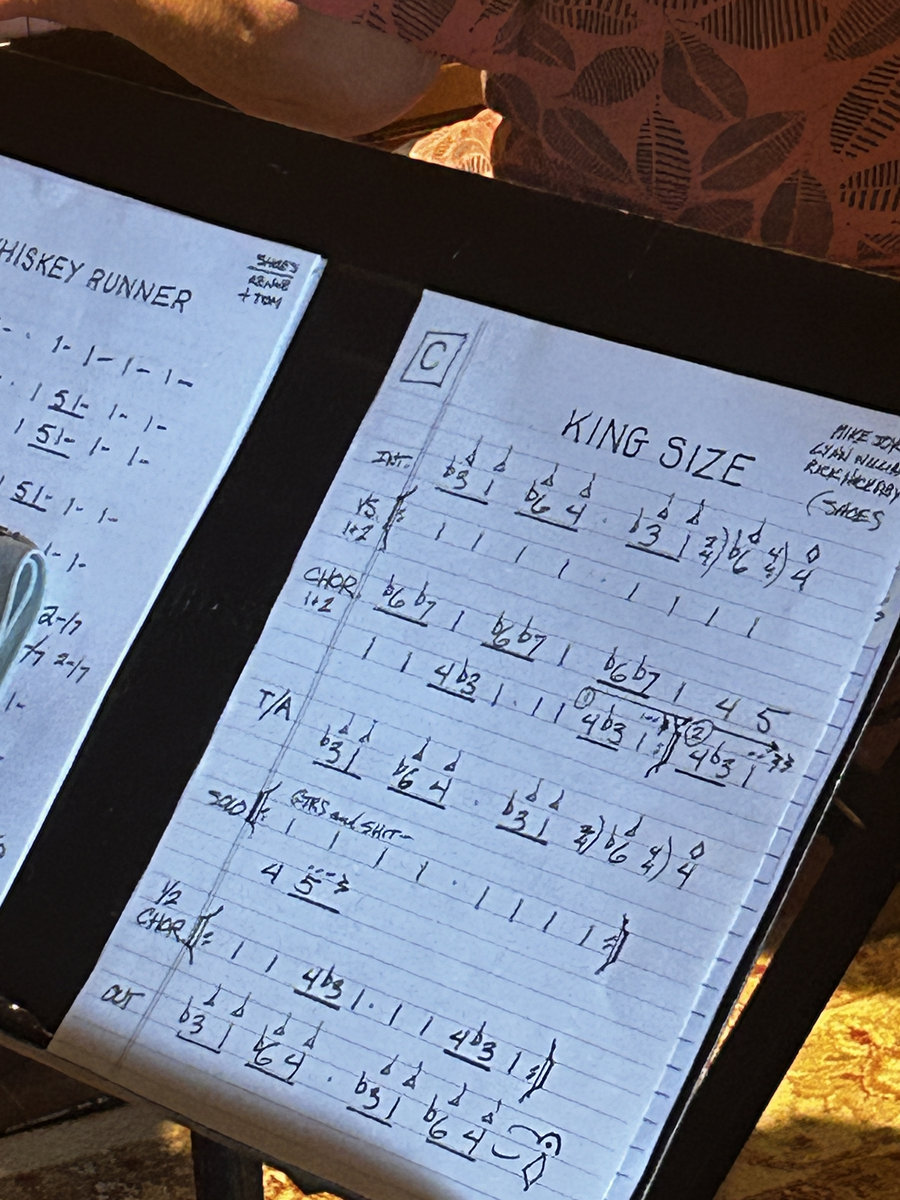 HISKEY RUNNER
SHOES
RENEE
+ TOM
1- 1- 1- 1-
1 5 1- 1- 1-
1 5 1- 1- 1-
5 1- 1- 1-
1-
2-/7
-/7 2-/7
1-
C
KING SIZE
MIKE
RICK
(SHOES
INT. b3 1 b6 4 . b3 1 2/4) b6 4/4) 4
VS 1+2 1 1 1 1 . 1 1 1 1
CHOR. 1+2 b6 b7 1 b6 b7 1 b6 b7 1 4 5
1 1 4 b3 1 . 1 1 ① 4 b3 1 :|| ② 4 b3 1
T/A b3 1 b6 4 . b3 1 2/4) b6 4/4) 4
SOLO ||: GTRS and SHIT-
1 1 1 1 . 1 1 1 1 :||
4 5
1/2 CHOR ||: 1 1 4 b3 1 . 1 1 4 b3 1 :||
OUT b3 1 b6 4 . b3 1 b6 4